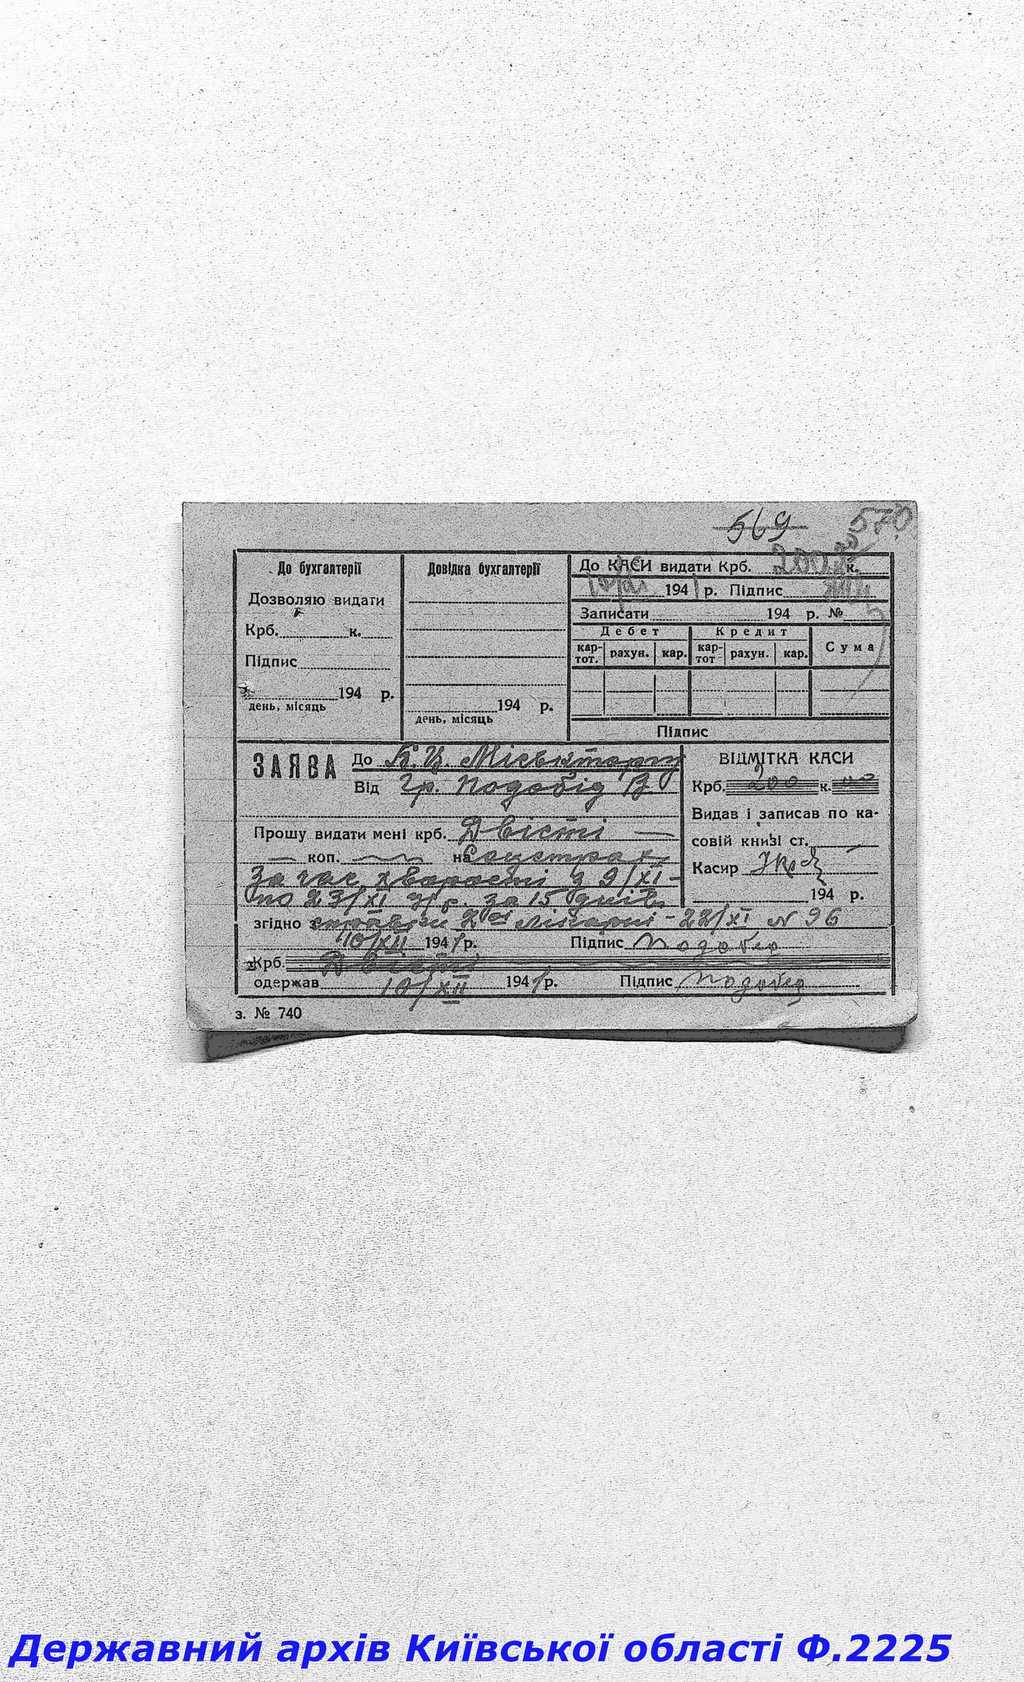 569 570
До бухгалтерії
Дозволяю видати
Крб. к.
Підпис
194 р.
день, місяць
Довідка бухгалтерії
194 р.
день, місяць
До КАСИ видати Крб. 200 к.
194 р. Підпис
Записати 194 р. №
Дебет Кредит Сума
кар-тот. рахун. кар. кар-тот рахун. кар.
Підпис
ЗАЯВА До К.Ц. Міськторгу
Від гр. Подобід В
Прошу видати мені крб. Двісті
коп. на Соцстрах
За час хворості з 9/XI-
по 23/XI ц/р. за 15 днів
згідно з справки 2ої лікарні - 22/XI N 96
10/XII 1941 р. Підпис Подобед
Крб. Двісті
одержав 10/XII 1941 р. Підпис Подобед
ВІДМІТКА КАСИ
Крб. 200 к. 00
Видав і записав по ка-
совій книзі ст.
Касир
194 р.
з. № 740
Державний архів Київської області Ф.2225